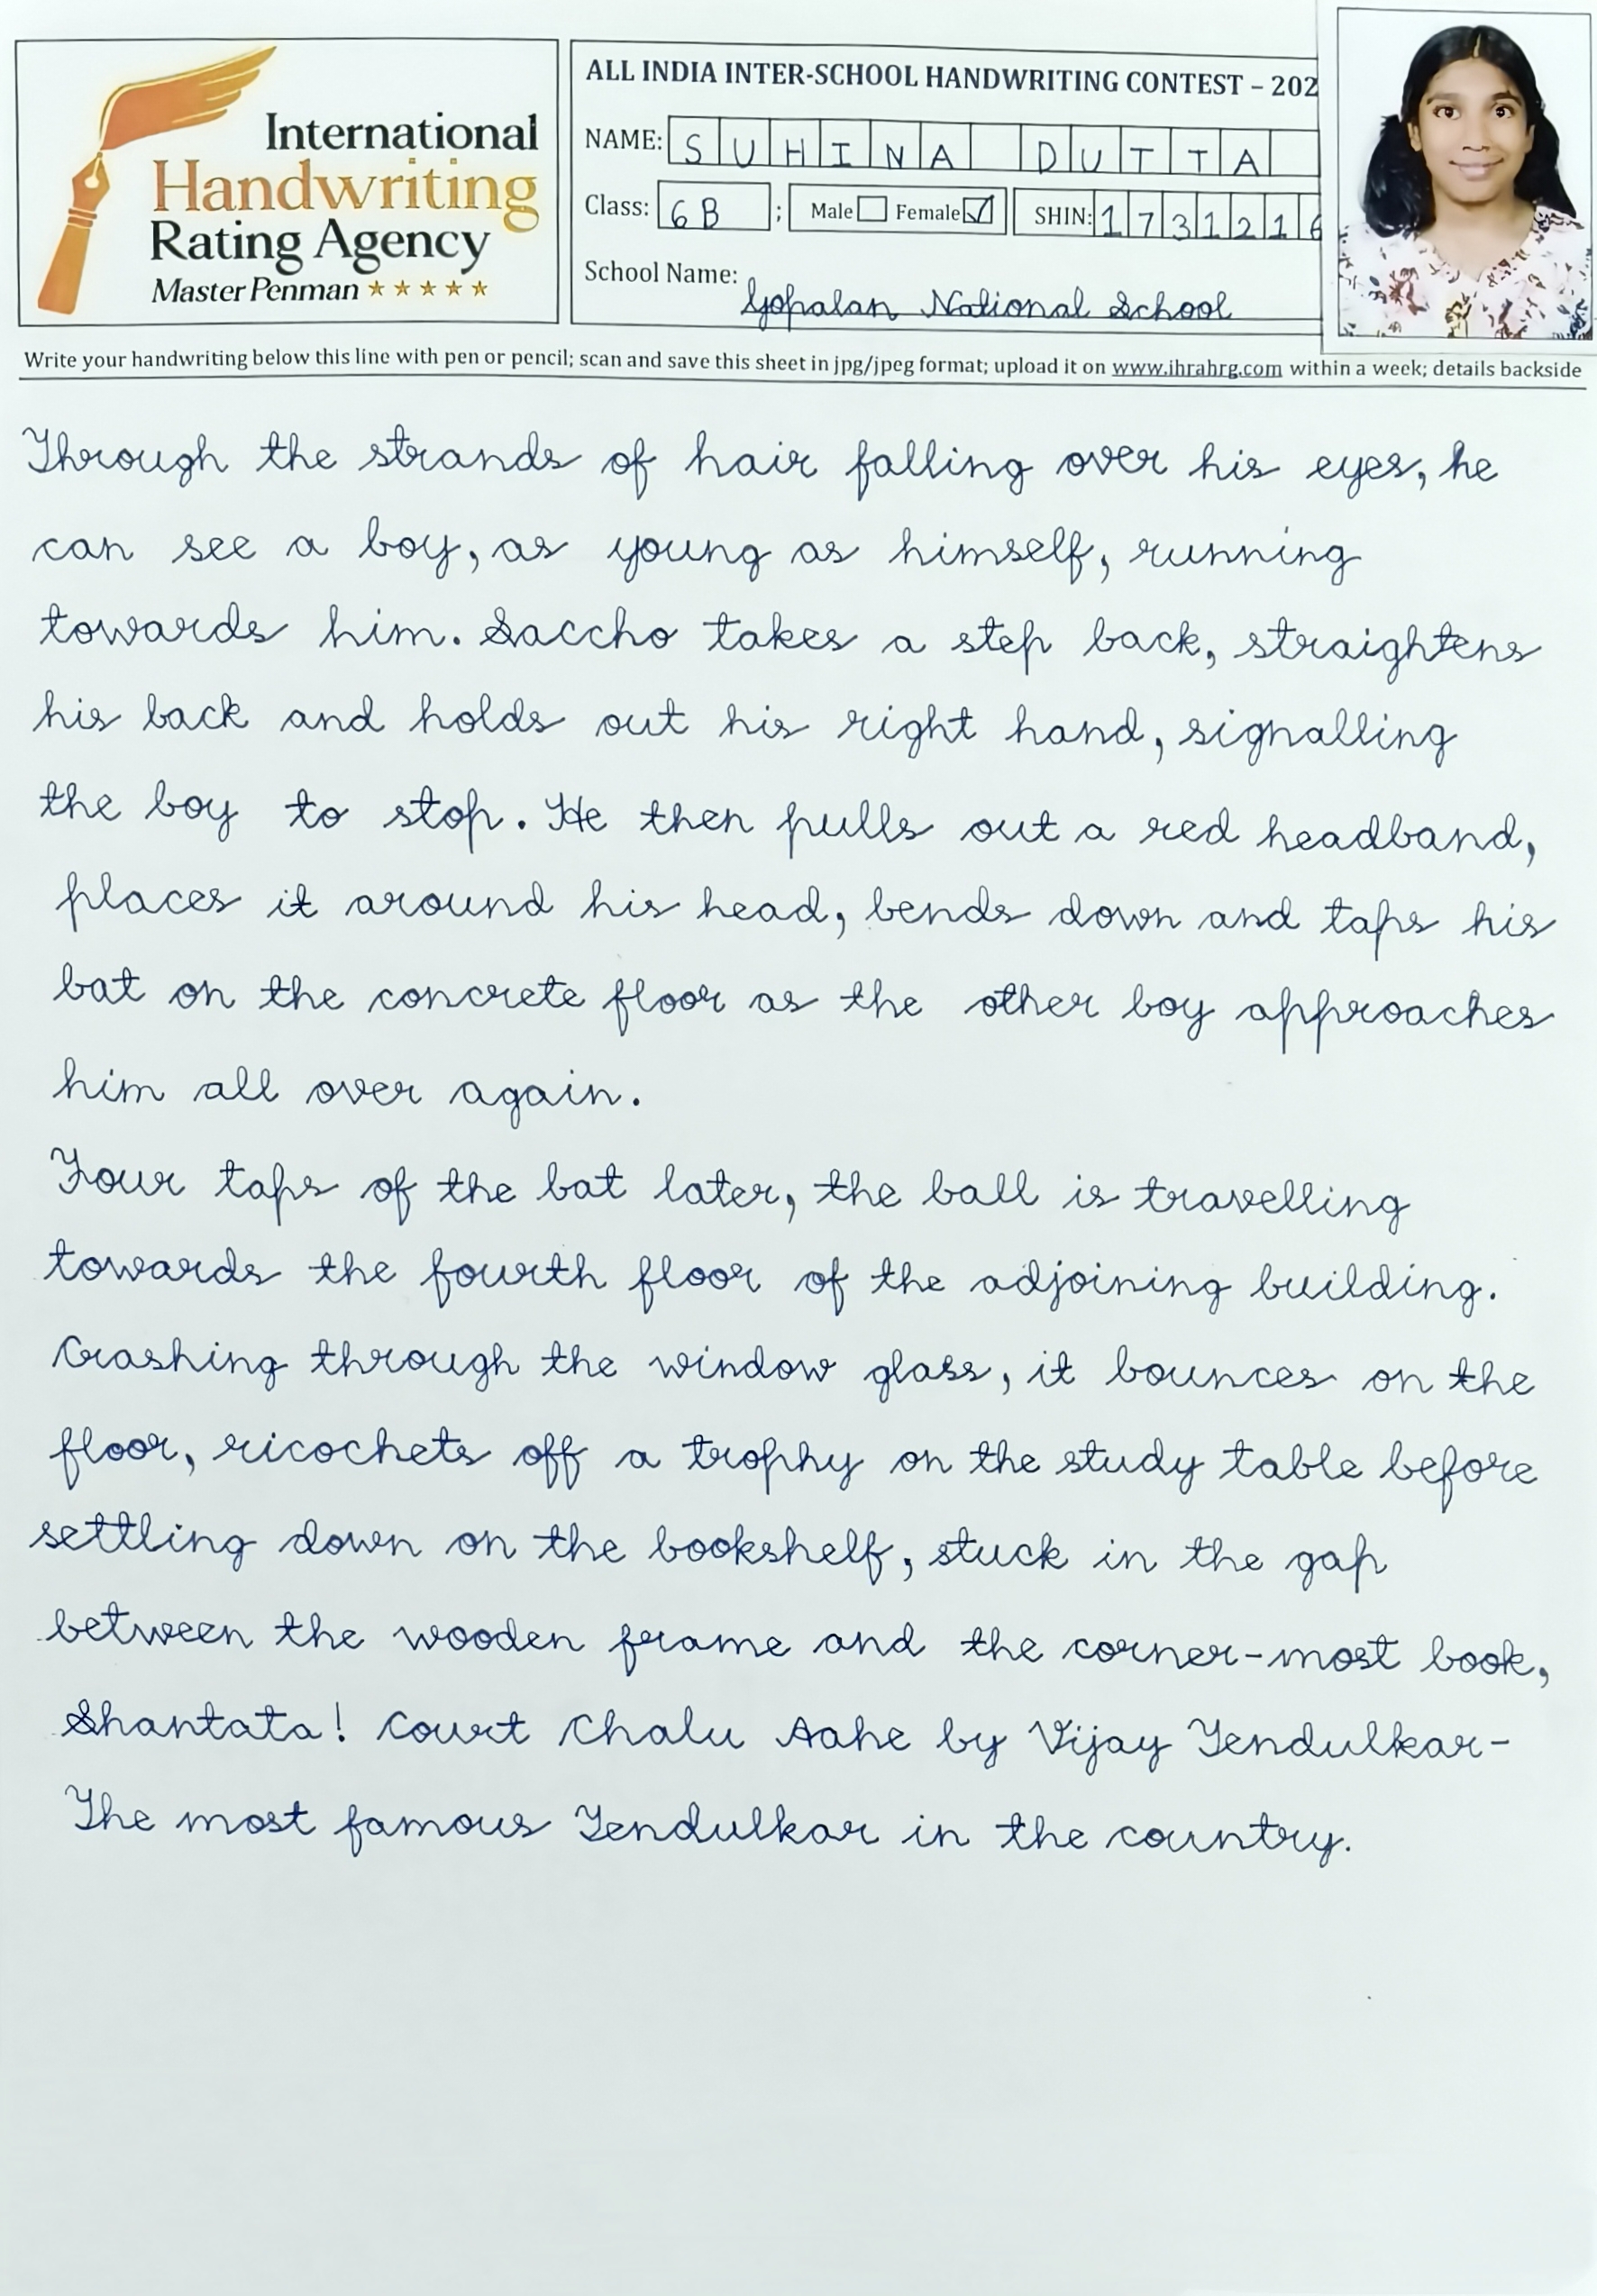 International
Handwriting
Rating Agency
Master Penman
ALL INDIA INTER-SCHOOL HANDWRITING CONTEST – 202
NAME: SUHINA DUTTA
Class: 6B ; Male Female SHIN: 1731216
School Name: Gopalan National School
Write your handwriting below this line with pen or pencil; scan and save this sheet in jpg/jpeg format; upload it on www.ihrahrg.com within a week; details backside
Through the strands of hair falling over his eyes, he
can see a boy, as young as himself, running
towards him. Saccho takes a step back, straightens
his back and holds out his right hand, signalling
the boy to stop. He then pulls out a red headband,
places it around his head, bends down and taps his
bat on the concrete floor as the other boy approaches
him all over again.
Four taps of the bat later, the ball is travelling
towards the fourth floor of the adjoining building.
Crashing through the window glass, it bounces on the
floor, ricochets off a trophy on the study table before
settling down on the bookshelf, stuck in the gap
between the wooden frame and the corner-most book,
Shantata! Court Chalu Aahe by Vijay Tendulkar-
The most famous Tendulkar in the country.